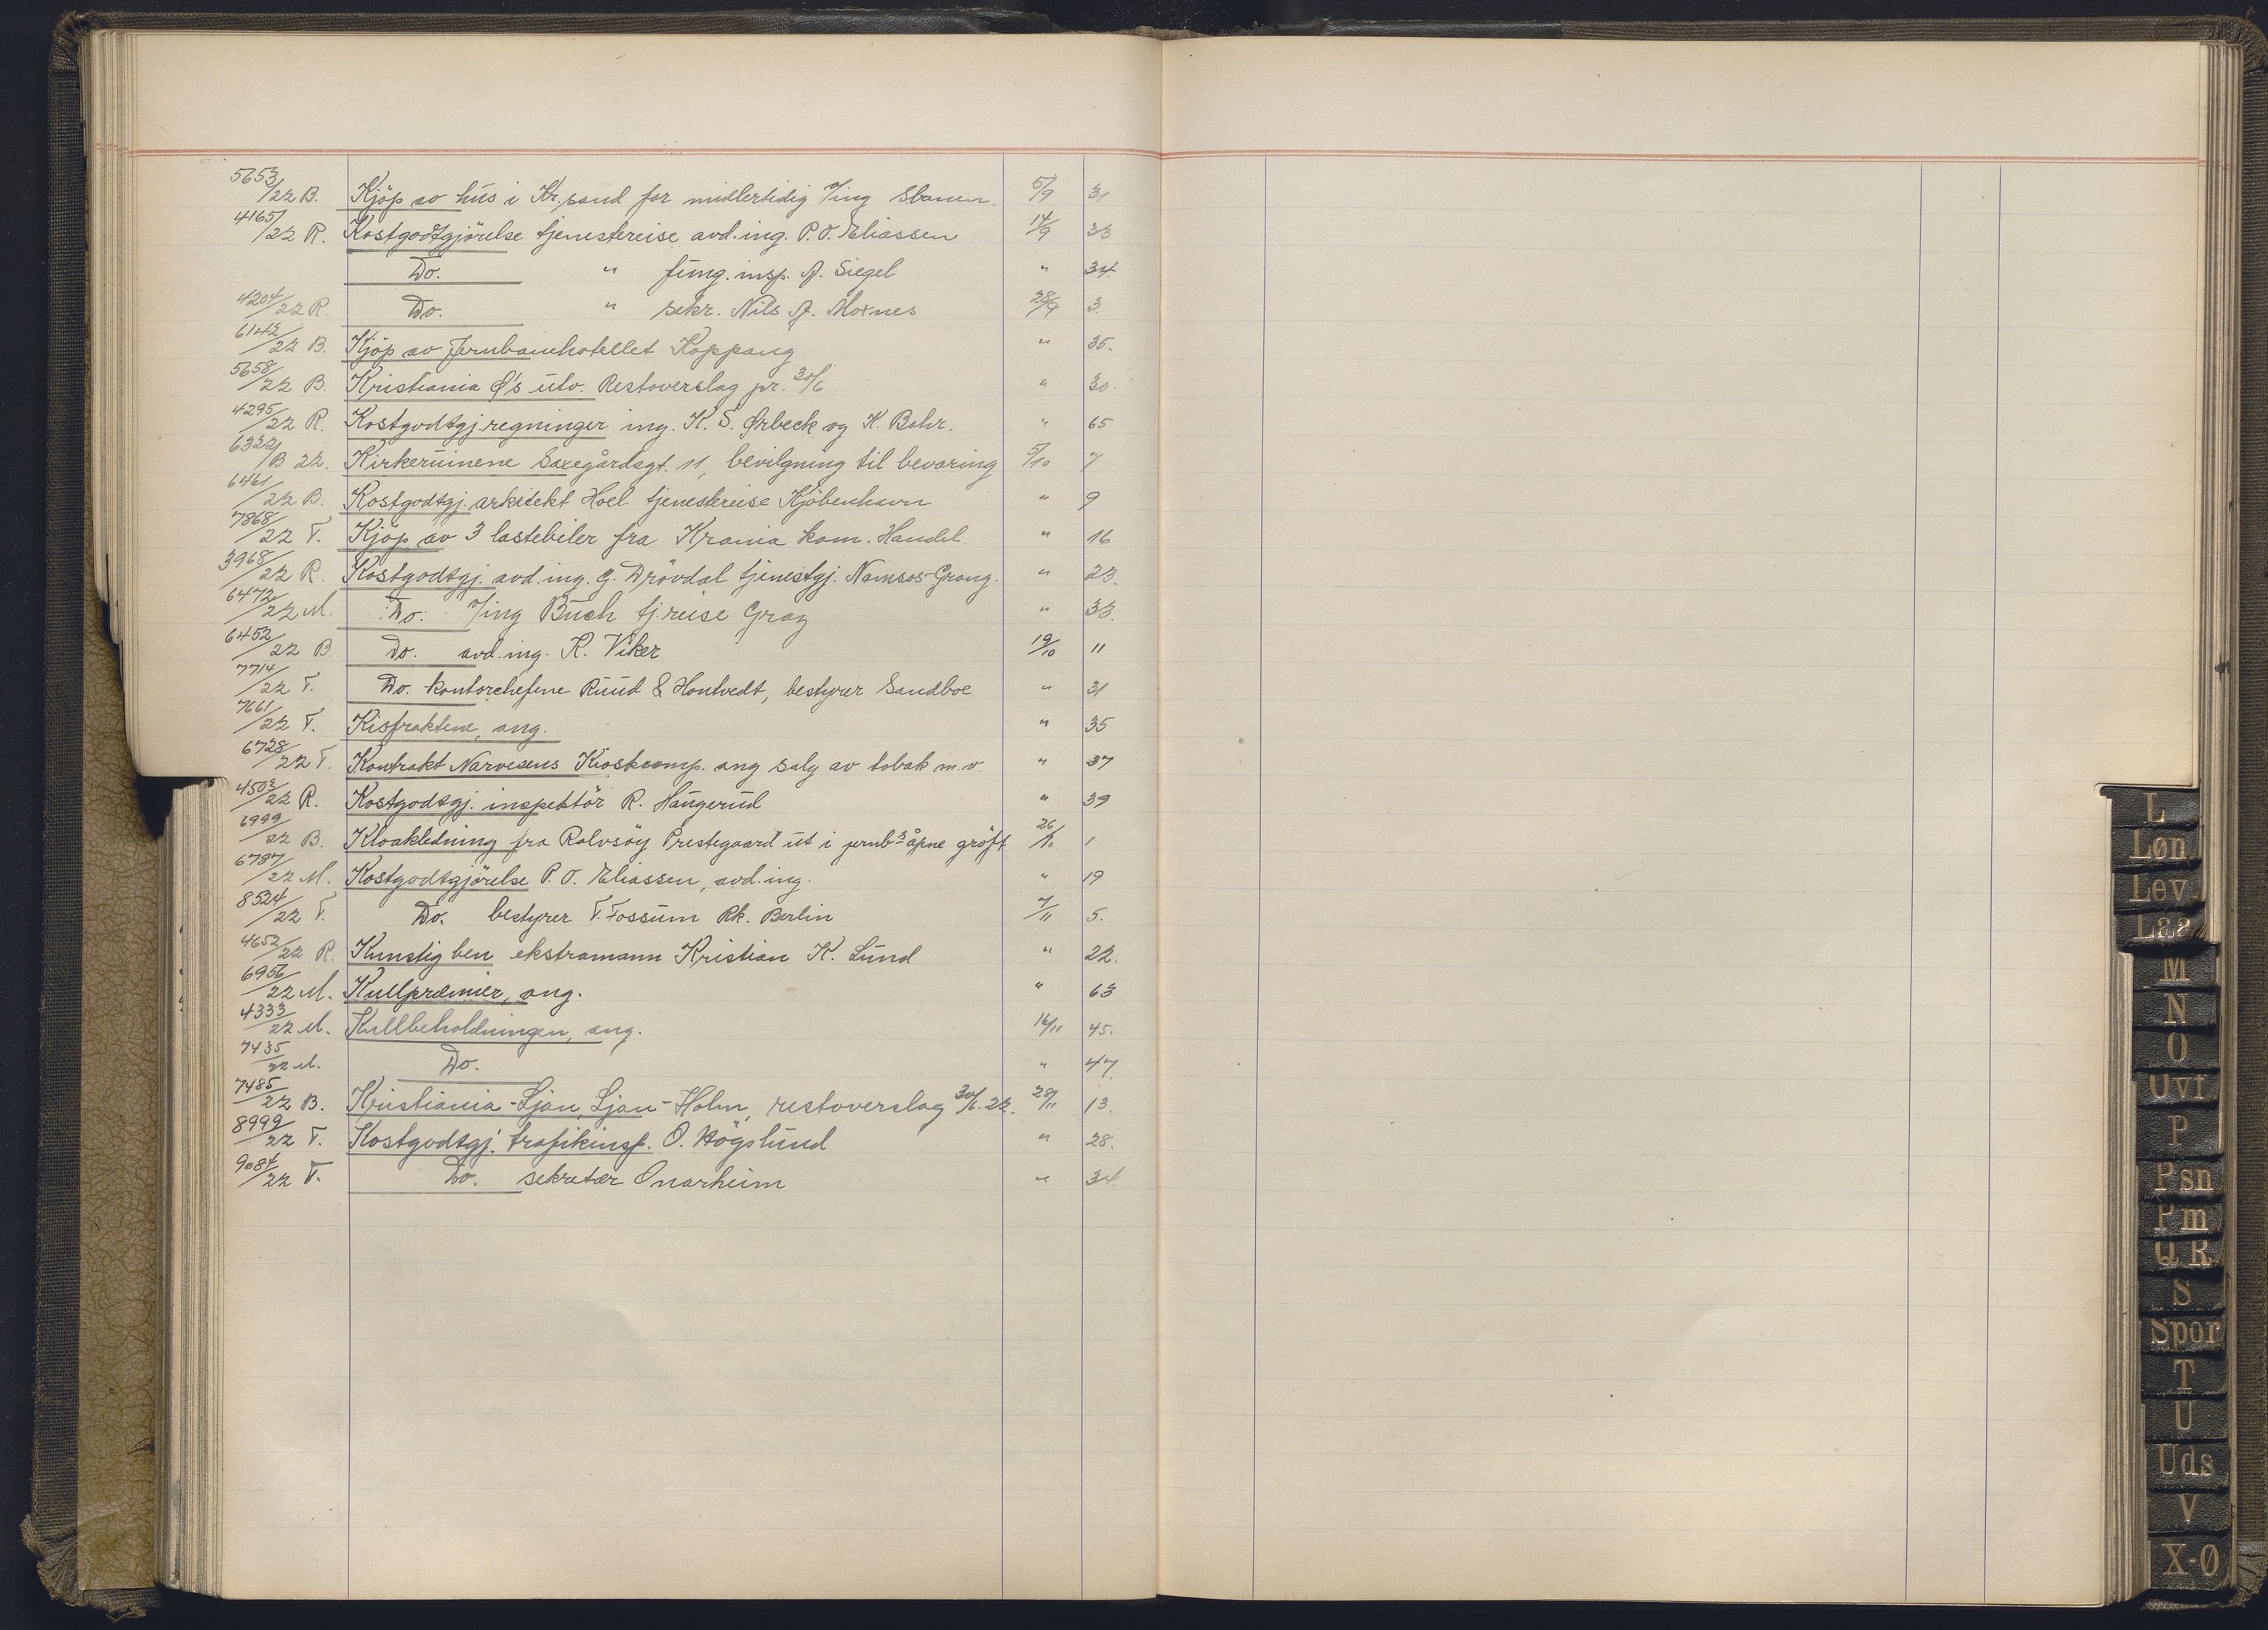 5653/22 B. Kjöp av hus i Kr.sand for midlertidig /ing Sbanen. 5/9 31
4165/22 R. Kostgodtgjörelse tjenestereise avd.ing. P.O. Eliassen 14/9 33
Do. " fung. insp. A. Siegel " 34.
4204/22 R. Do. " sekr. Nils A. Moxnes 28/9 3.
6142/22 B. Kjöp av Jernbanehotellet Koppang " 35.
5658/22 B. Kristiania Ø's utv. Restoverslag pr. 30/6 " 30.
4295/22 R. Kostgodtgj.regninger ing. K. S. Ørbeck og K. Bohr. " 65
6322/B 22. Kirkeruinene Saxegårdsgt. 11, bevilgning til bevaring 5/10 7
6461/22 B. Kostgodtgj. arkitekt Hoel tjenestereise Kjöbenhavn " 9
7868/22 T. Kjöp av 3 lastebiler fra Krania kom. Handel. " 16
3968/22 R. Kostgodtgj. avd.ing. G. Drövdal tjenestgj. Namsos-Grong. " 23.
6472/22 M. Do. /ing Buch tj.reise Graz " 33.
6452/22 B. Do. avd.ing. K. Viker 19/10 11
7714/22 T. Do. kontorchefene Ruud & Hontvedt, bestyrer Sandboe " 31
7661/22 T. Kisfraktene, ang. " 35
6728/22 T. Kontrakt Narvesens Kioskcomp. ang salg av tobak m.v. " 37
4503/22 R. Kostgodtgj. inspektör R. Haugerud " 39
6999/22 B. Kloakledning fra Rolvsöy Prestegaard ut i jernb.s åpne gröft 26/10 1
6787/22 M. Kostgodtgjörelse P.O. Eliassen, avd.ing. " 19
8524/22 T. Do. bestyrer T. Fossum Rk. Berlin 7/11 5.
4652/22 R. Kunstig ben ekstramann Kristian K. Lund " 22.
6956/22 M. Kullpræmier, ang. " 63
4333/22 M. Kullbeholdningen, ang. 16/11 45.
7435/22 M. Do. " 47
7485/22 B. Kristiania-Ljan, Ljan-Holm, restoverslag 30/6.22. 28/11 13.
8999/22 T. Kostgodtgj. trafikinsp. O. Högslund " 28.
9084/22 T. Do. sekretær Onarheim " 34.
L
Løn
Lev
Laa
M
N
O
Ovf
P
Psn
Pm
Q R
S
Spor
T
U
Uds
V
X-Ø